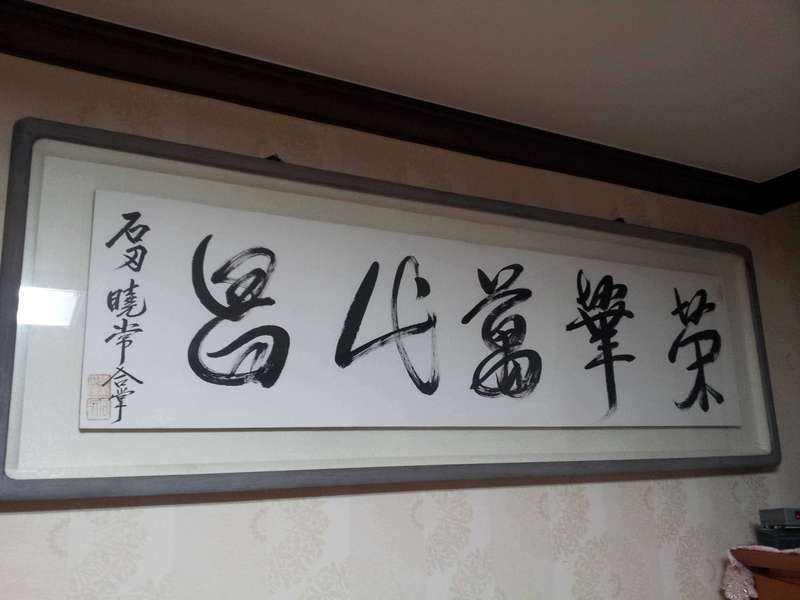 榮華萬代昌
石刃 曉常合掌